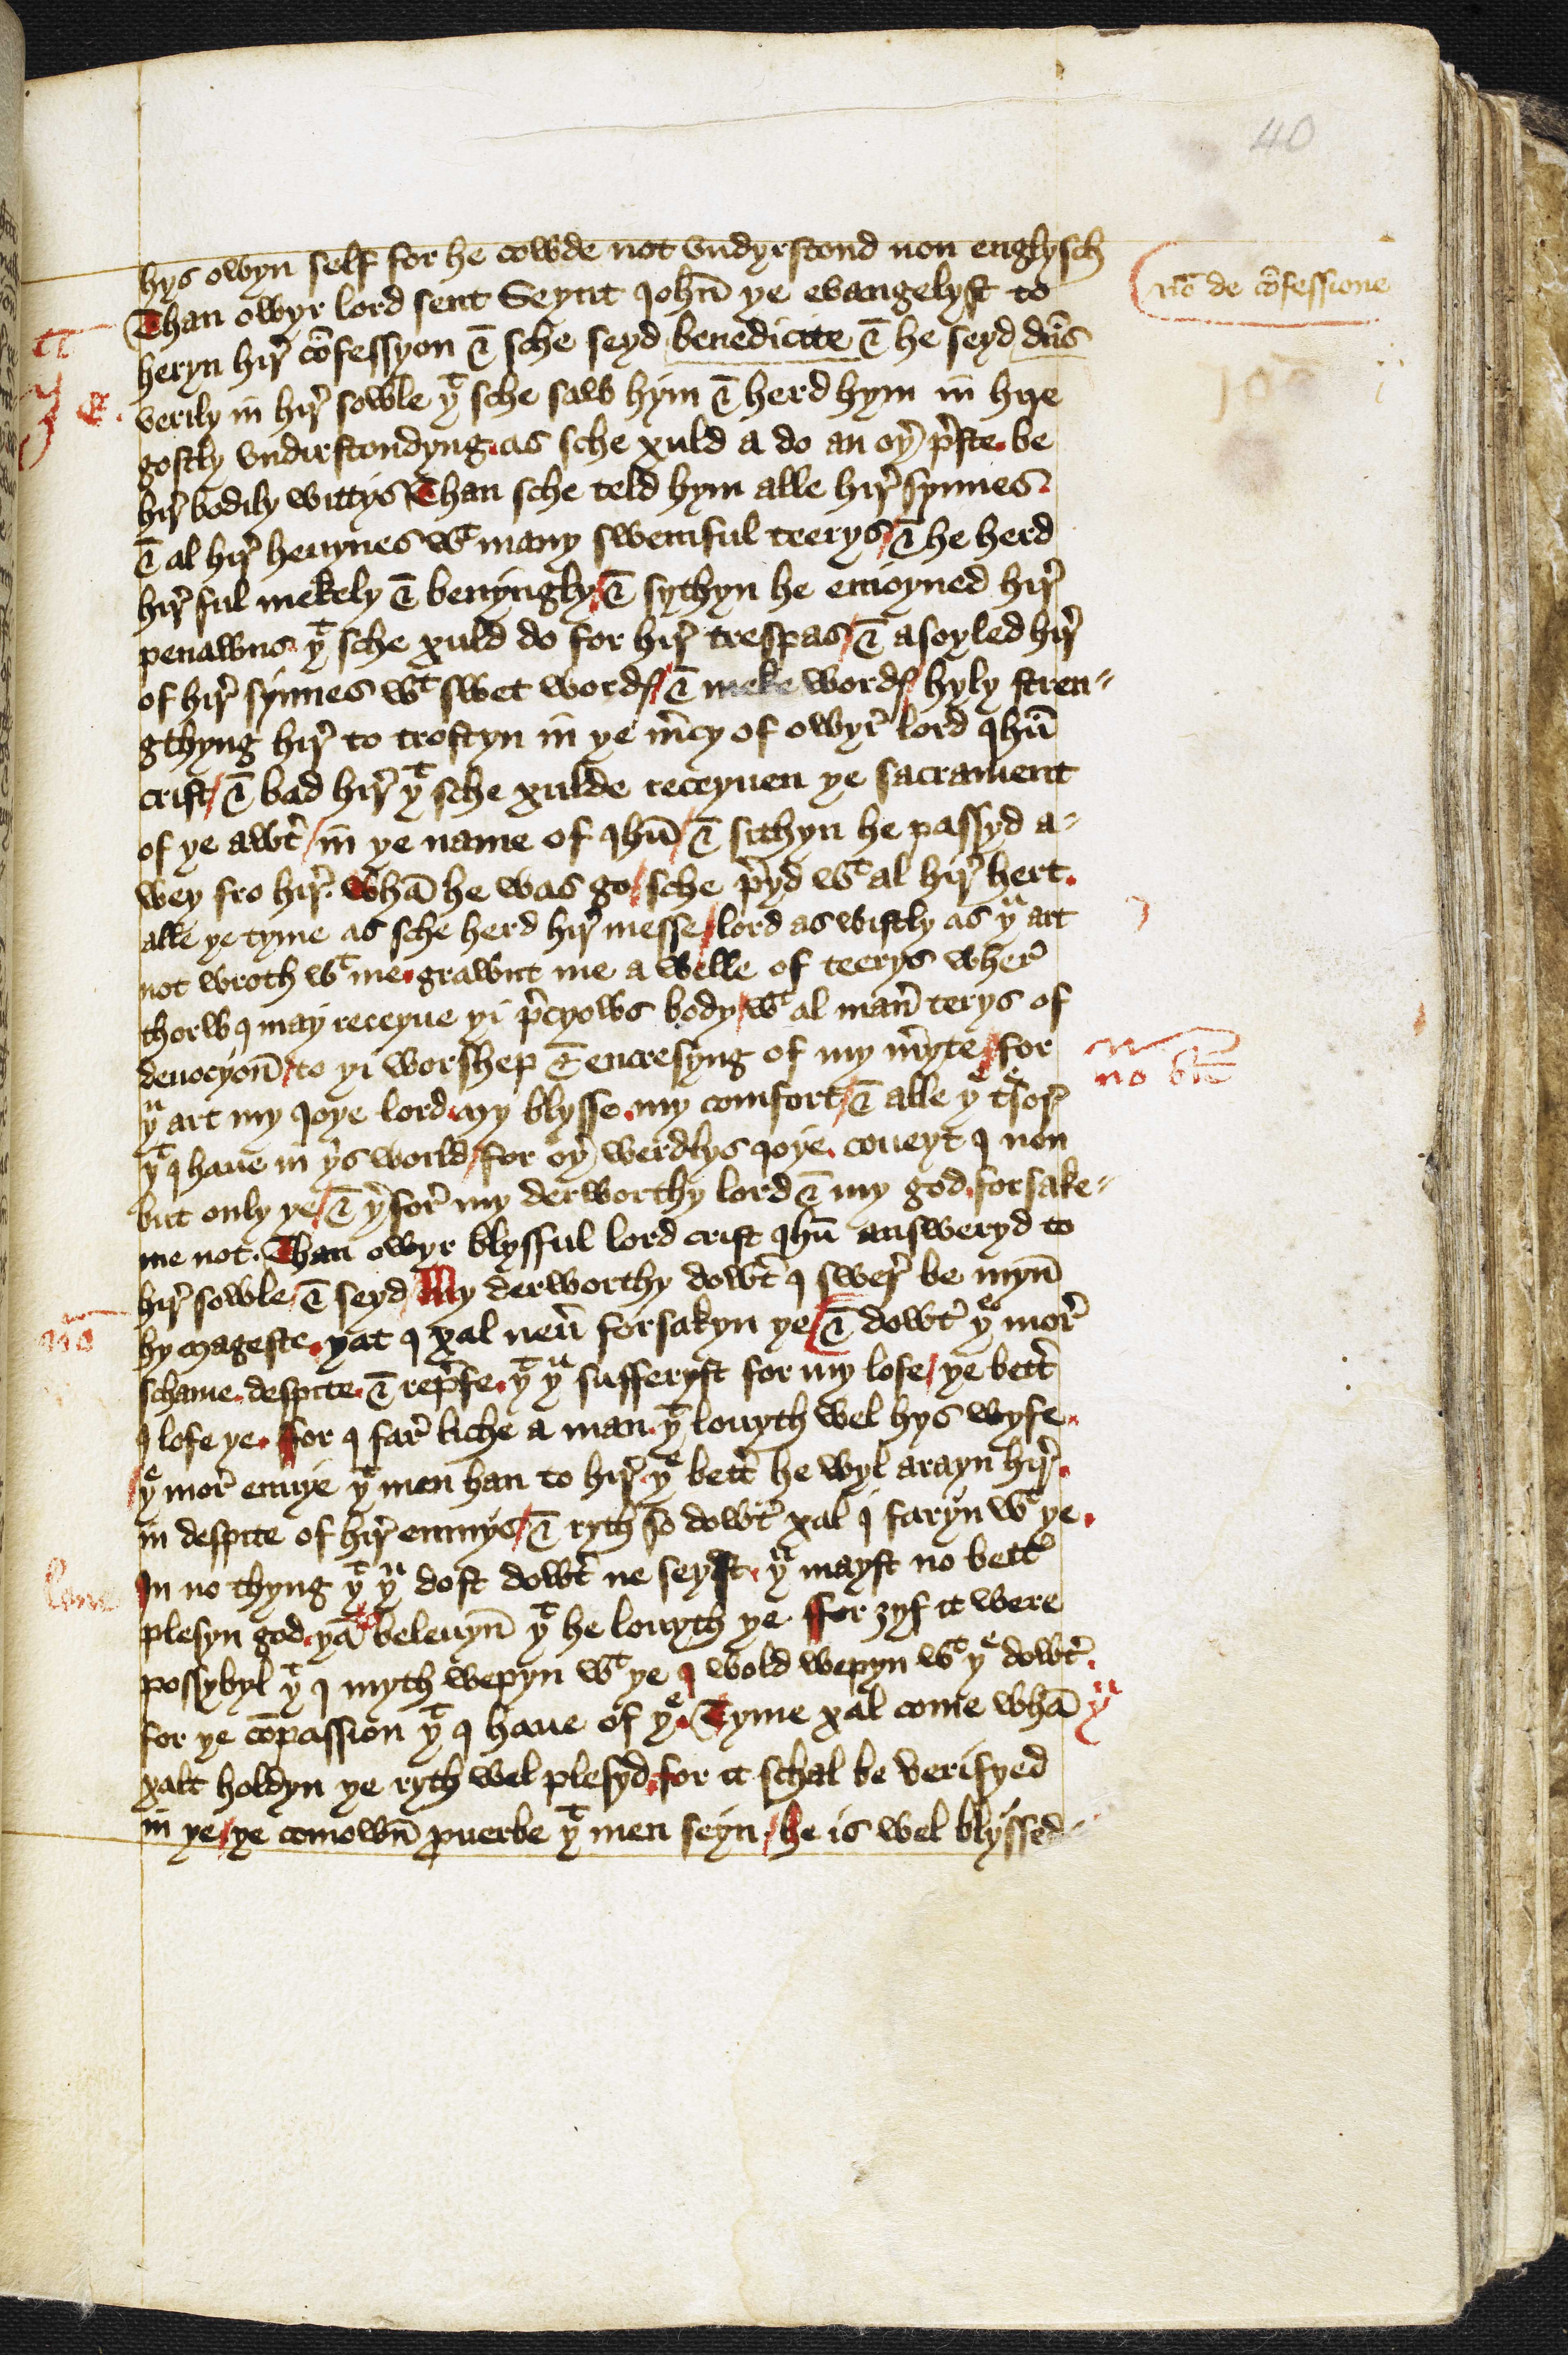 40
hys owyn self for he cowde not vndyrstond non englysch
nō de cōfessione
Than owyr lord sent Seynt Iohn̄ ye evangelyst to
heryn hir̛ cōfessyon & sche seyd benedicite & he seyd dn̄s
verily in hir̛ sowle yᵗ sche saw hym & herd hym in hire
gostly vndirstondyng. as sche xuld a do an oyr̛ p̛ste. be
hir̛ bodily wittys Than sche teld hym alle hir̛ synnes.
& al hir̛ heuynes wᵗ many swemful teerys / & he herd
hir̛ ful mekely & benyngly / & sythyn he enioyned hir̛
penawns. yᵗ sche xuld do for hir̛ trespas / & asoyled hir̛
of hir̛ synnes wᵗ swet wordꝭ / & meke wordꝭ / hyly stren⸗
gthyng hir̛ to trostyn in ye m̛cy of owyr̛ lord Ihū
crist / & bad hir̛ yᵗ sche xulde receyuen ye sacrament
of ye awt̛ / in ye name of Ihū / & sithyn he passyd a⸗
wey fro hir̛. Whā he was go / sche p̛yd wᵗ al hir̛ hert.
alle ye tyme as sche herd hir̛ messe / lord as wistly as yᵘ art
not wroth wᵗ me. grawnt me a welle of teerys wher̛
thorw I may receyue yi p̛cyows body / wᵗ al man̛ terys of
deuocyon̄ / to yi worshep & encresyng of my m̛yte / for
no bn̄
yᵘ art my Ioye lord. my blysse. my comfort / & alle yᵉ tᵉsor̛
yᵗ I haue in yⁱs world / for oyr̛ werdlys Ioye. coueyt I non
but only ye / & y̛for̛ my derworthy lord & my god. forsake⸗
me not. Than owyr blysful lord crist Ihū answeryd to
hir̛ sowle / & seyd / My derworthy dowt̛ I swer̛ be myn̄
nō
hy mageste. yat I xal neư forsakyn ye / & dowt̛ yᵉ mor̛
schame. despite. & rep̛fe. yᵗ yᵘ sufferyst for my lofe / ye bett̛
I lofe ye. for I far̛ liche a man. yᵗ louyth wel hys wyfe.
/ yᵉ mor̛ enuye yᵗ men han to hir̛ yᵉ bett̛ he wyl arayn hir̛.
in despite of hir̛ enmys / & ryth so dowt̛ xal I faryn wᵗ ye.
In no thyng yᵗ yᵘ dost dowt̛ ne seyst. yᵘ mayst no bett̛
plesyn god. yā beleuyn̄ yᵗ he louyth ye. for ȝyf it were
possybyl yᵗ I myth wepyn wᵗ ye I wold wepyn wᵗ yᵉ dowt̛.
for ye cōpassion yᵗ I haue of yᵉ. Tyme xal come whā yᵘ
xalt holdyn ye ryth wel plesyd. for it schal be verifyed
in ye / ye comown̄ ꝓuerbe yᵗ men seyn / he is wel blyssed